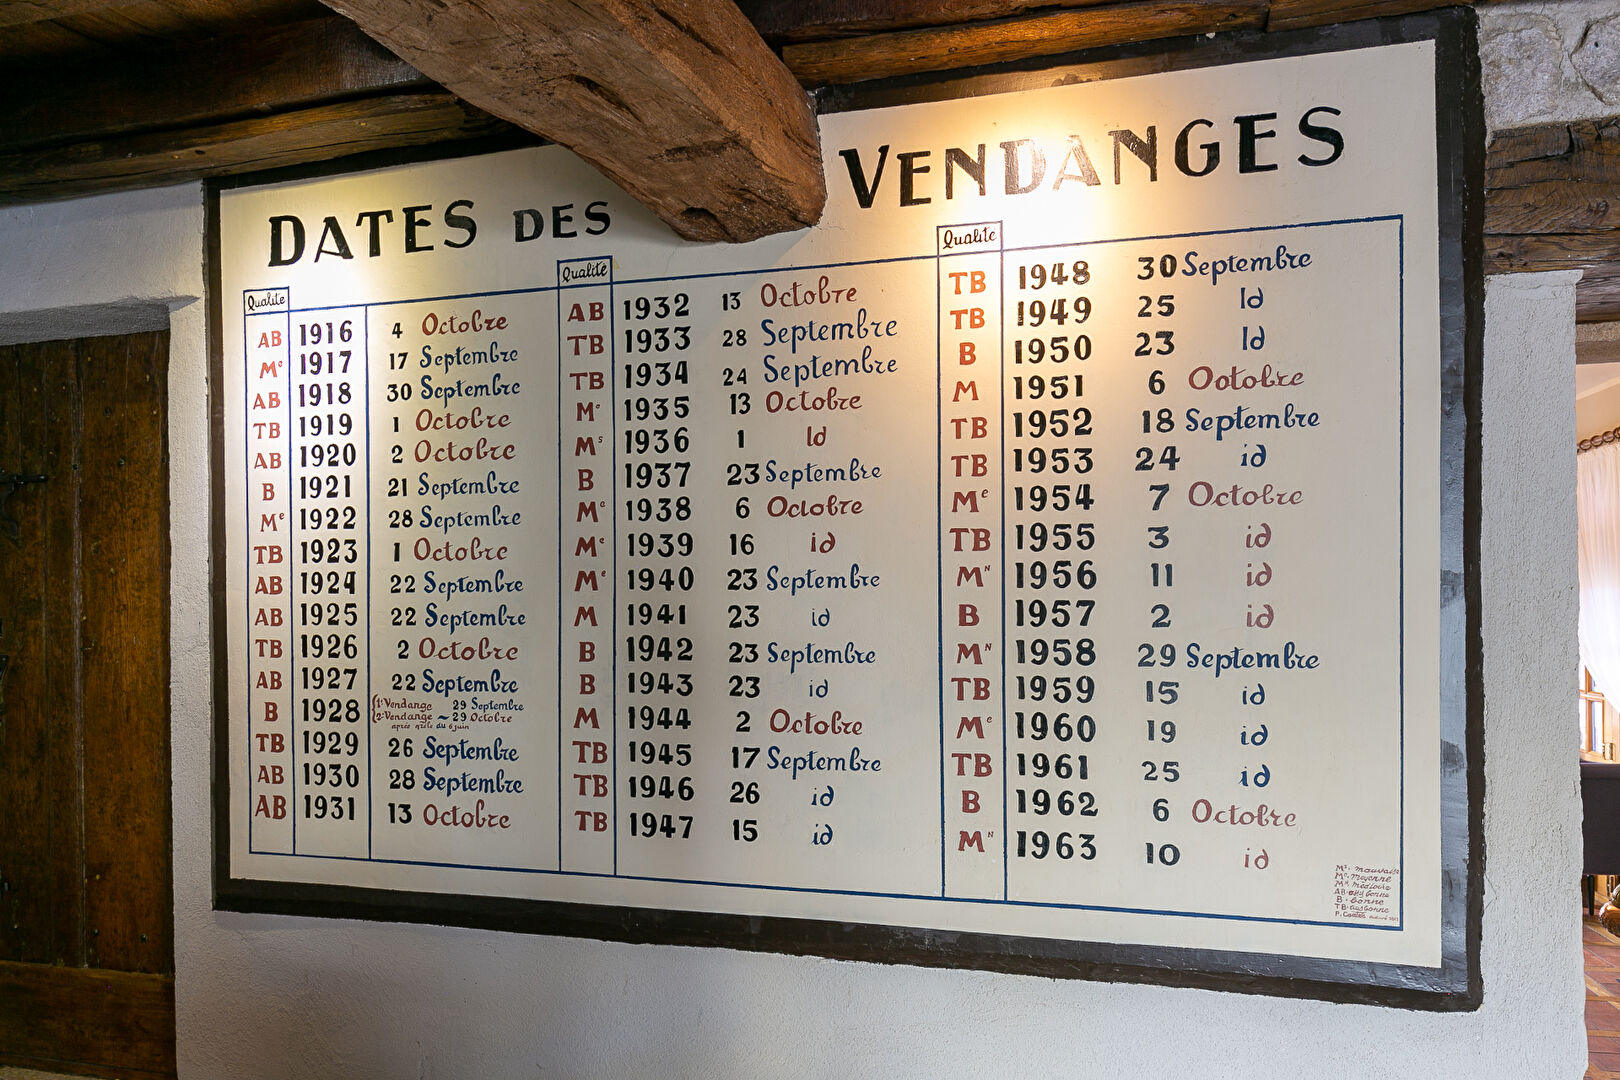 DATES DES VENDANGES
Qualité
AB 1916 4 Octobre
Me 1917 17 Septembre
AB 1918 30 Septembre
TB 1919 1 Octobre
AB 1920 2 Octobre
B 1921 21 Septembre
Me 1922 28 Septembre
TB 1923 1 Octobre
AB 1924 22 Septembre
AB 1925 22 Septembre
TB 1926 2 Octobre
AB 1927 22 Septembre
B 1928 1e Vendange 29 Septembre
2e Vendange ~ 29 Octobre
après gelée du 6 juin
TB 1929 26 Septembre
AB 1930 28 Septembre
AB 1931 13 Octobre
Qualité
AB 1932 13 Octobre
TB 1933 28 Septembre
TB 1934 24 Septembre
Me 1935 13 Octobre
Ms 1936 1 Id
B 1937 23 Septembre
Me 1938 6 Octobre
Me 1939 16 id
Me 1940 23 Septembre
M 1941 23 id
B 1942 23 Septembre
B 1943 23 id
M 1944 2 Octobre
TB 1945 17 Septembre
TB 1946 26 id
TB 1947 15 id
Qualité
TB 1948 30 Septembre
TB 1949 25 Id
B 1950 23 Id
M 1951 6 Octobre
TB 1952 18 Septembre
TB 1953 24 id
Me 1954 7 Octobre
TB 1955 3 id
MN 1956 11 id
B 1957 2 id
MN 1958 29 Septembre
TB 1959 15 id
Me 1960 19 id
TB 1961 25 id
B 1962 6 Octobre
MN 1963 10 id
Ms. mauvaise
Me. Moyenne
MN médiocre
AB. assy bonne
B - bonne
TB. très bonne
P. Coates